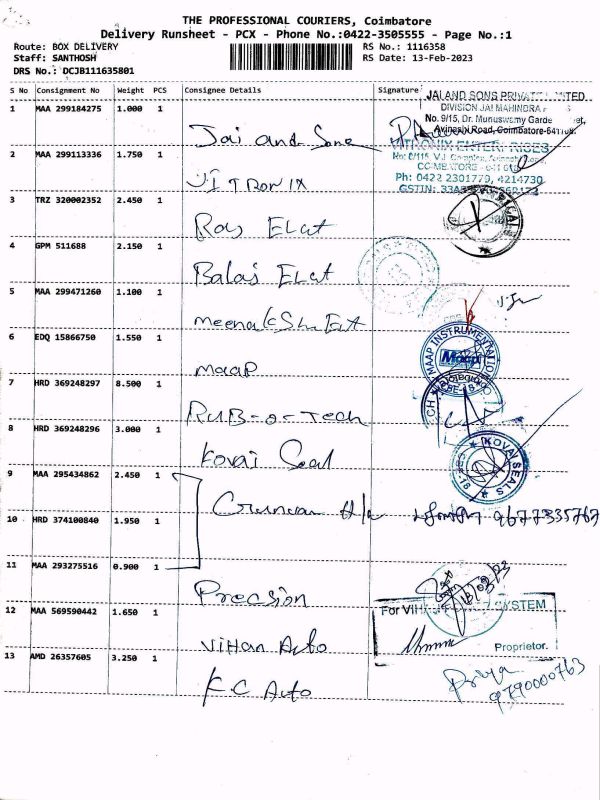 THE PROFESSIONAL COURIERS, Coimbatore
Delivery Runsheet - PCX - Phone No.:0422-3505555 - Page No.:1
Route: BOX DELIVERY RS No.: 1116358
Staff: SANTHOSH RS Date: 13-Feb-2023
DRS No.: DCJB111635801
S No Consignment No Weight PCS Consignee Details Signature
JAI AND SONS PRIVATE LIMITED
DIVISION JAI MAHINDRA
No. 9/15, Dr. Munuswamy Garde
Avinashi Road, Coimbatore-641
1 MAA 299184275 1.000 1 Jai and Sons
VITRONIX ENTERPRISES
2 MAA 299113336 1.750 1 VITRONIX
COIMBATORE
Ph: 0422 2301779, 4214730
GSTIN:
3 TRZ 320002352 2.450 1 Raj Elat
4 GPM 511688 2.150 1 Balaji Elat
5 MAA 299471260 1.100 1 meenakshi Eat
6 EDQ 15866750 1.550 1 maap
MAAP INSTRUMENTATION
Maap
7 HRD 369248297 8.500 1 RUB-O-Tech
8 HRD 369248296 3.000 1 Kovai Seal
KOVAI SEALS
9 MAA 295434862 2.450 1
10 HRD 374100840 1.950 1 9677335767
11 MAA 293275516 0.900 1 Precsion
12 MAA 569590442 1.650 1 Vihan Auto
For VIHA SYSTEM
Proprietor.
13 AMD 26357605 3.250 1 K C Auto
Priya
9790000763